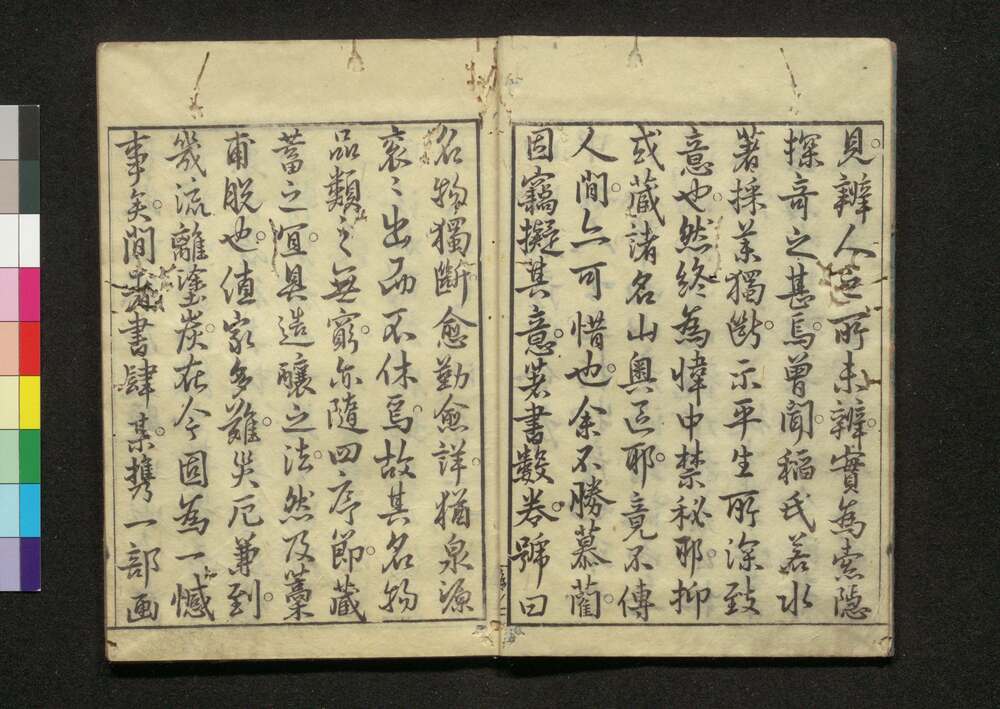 見。辨人世所未辨。實為索隱
探奇之甚焉。曾聞。稲氏若水
著採薬獨断。示平生所深致
意也。然終為幃中禁秘耶。抑
或蔵諸名山奥區耶。竟不傳
人間。亦可惜也。余不勝慕藺。
因竊擬其意。著書數巻。號曰
名物獨断。愈勤愈詳。猶泉源
衮〻出而不休焉。故其名物
品類之無窮。亦随四序節。蔵
蓄之宜。具造醸之法。然及藁
甫脱也。値家多難。災厄兼到。
幾流離塗炭。在今固為一憾
事矣。間者書肆某。携一部画